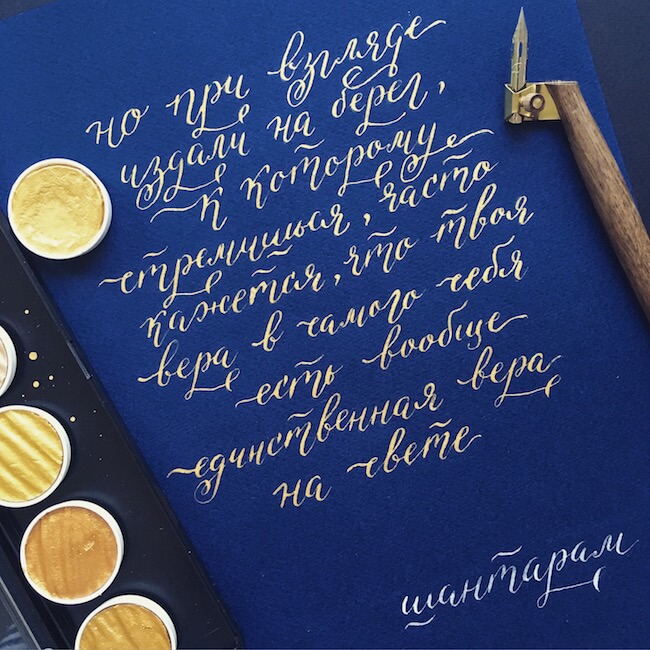 но при взгляде
издали на берег,
к которому
стремишься, часто
кажется, что твоя
вера в самого себя
есть вообще
единственная вера
на свете
шантарам